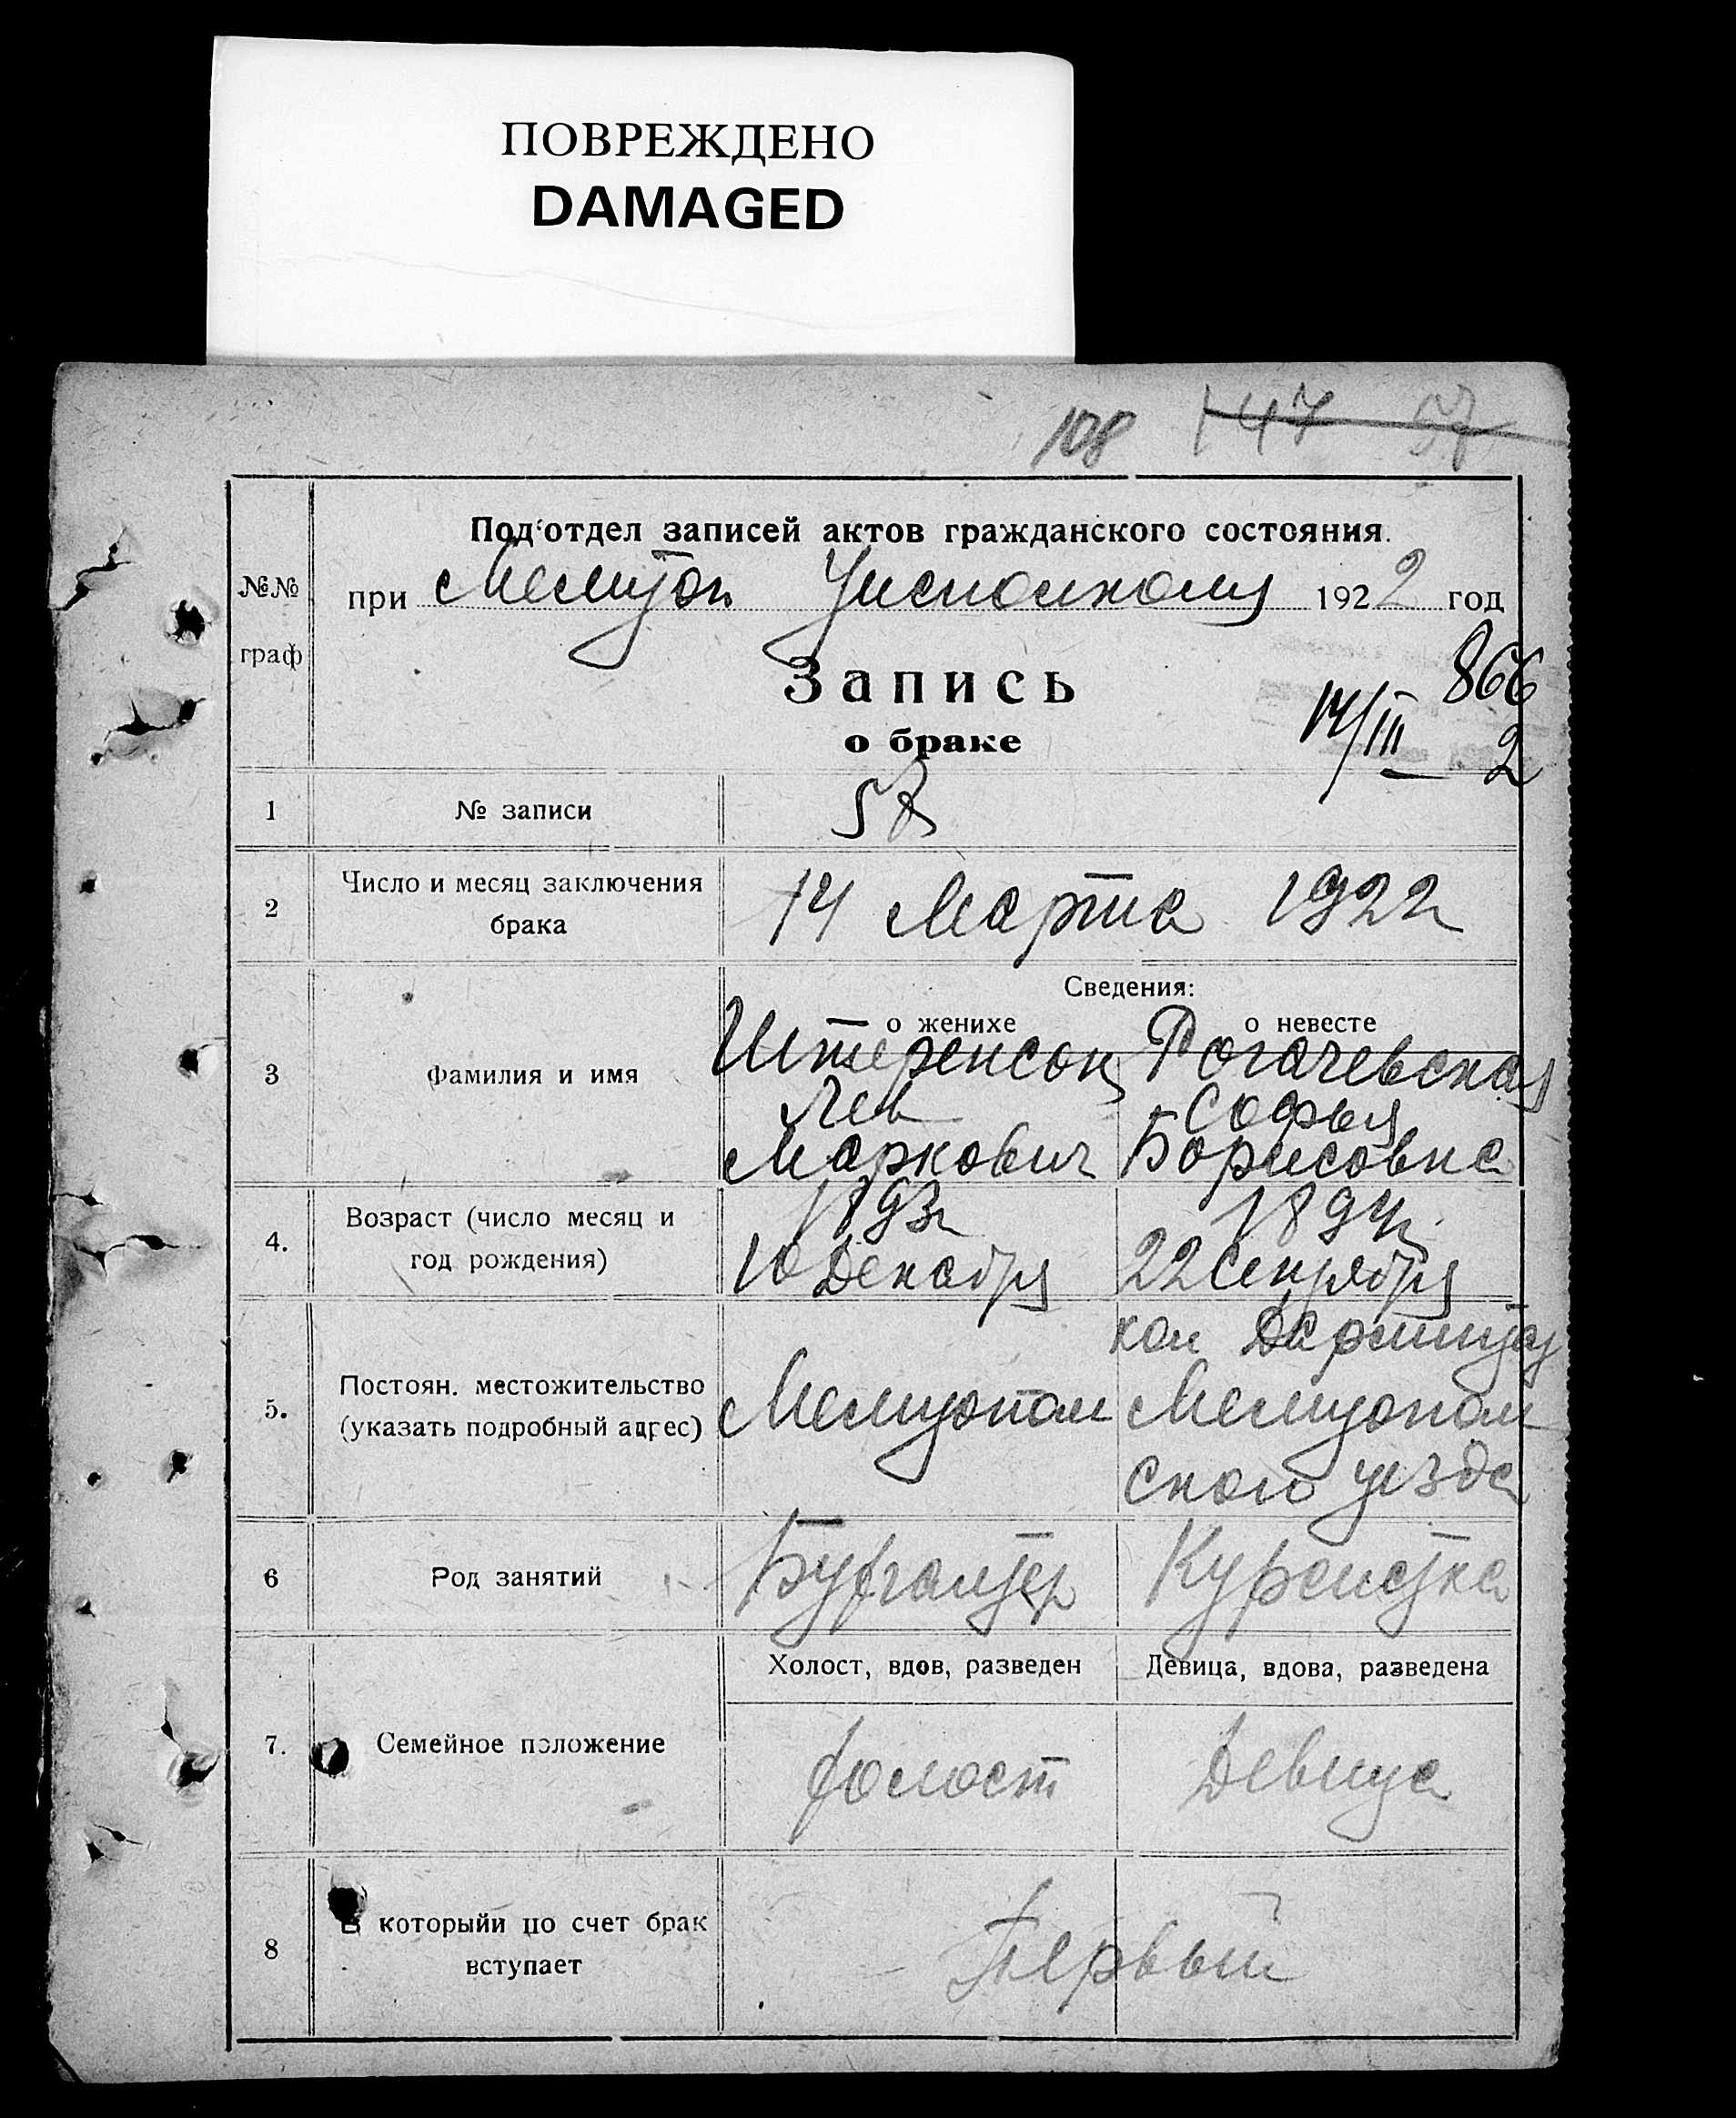 ПОВРЕЖДЕНО
DAMAGED
108 147 57
Подотдел записей актов гражданского состояния.
№№ граф
при Мелитоп Уисполкому 1922 год
Запись
о браке
866
14/III 2
1 № записи 57
2 Число и месяц заключения брака 14 Марта 1922
Сведения:
о женихе о невесте
3 Фамилия и имя
Штеренсон Рогачевская
Лев Софья
Маркович Борисовна
4. Возраст (число месяц и год рождения)
1893г 1894г.
10 Декабря 22 Сентября
5. Постоян. местожительство (указать подробный адрес)
Мелитопол
кол
Мелитополь
ского уезда
6 Род занятий Бухгалтер Курсистка
Холост, вдов, разведен Девица, вдова, разведена
7. Семейное положение холост Девица
8 В которыйи по счет брак вступает Первый